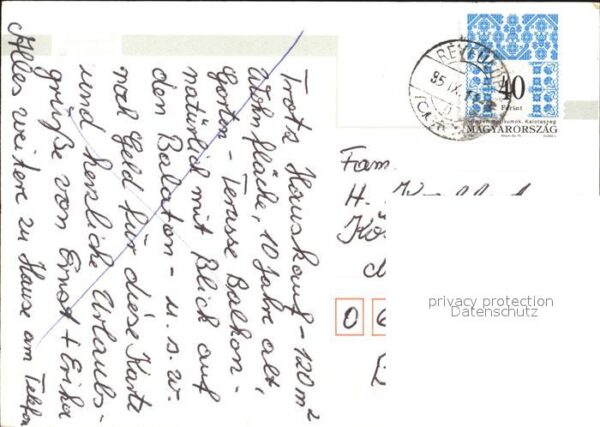 Trotz Hauskauf - 120 m²
Wohnfläche, 10 Jahre alt,
Garten - Terasse Balkon -
natürlich mit Blick auf
den Balaton - u. s. w.
noch Geld für diese Karte
und herzliche Urlaubs-
grüße von Ernst + Erika
Alles weitere zu Hause am Telefon
RÉVFÜLÖP
40
Forint
MAGYARORSZÁG
Fam.
H.
privacy protection
Datenschutz